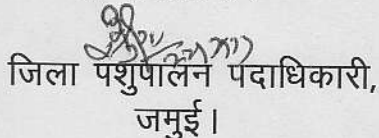 जिला पशुपालन पदाधिकारी,
जमुई।